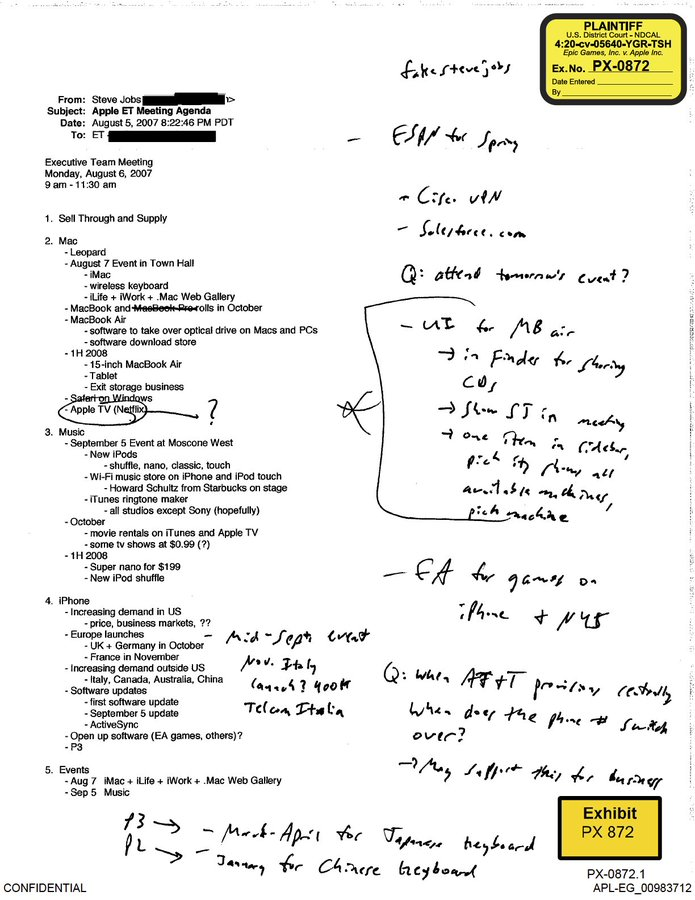 PLAINTIFF
U.S. District Court - NDCAL
4:20-cv-05640-YGR-TSH
Epic Games, Inc. v. Apple Inc.
Ex. No. PX-0872
Date Entered
By
fakestevejobs
From: Steve Jobs
Subject: Apple ET Meeting Agenda
Date: August 5, 2007 8:22:46 PM PDT
To: ET
- ESPN for Spring
Executive Team Meeting
Monday, August 6, 2007
9 am - 11:30 am
- Cisco VPN
- Salesforce.com
Q: attend tomorrow's event?
1. Sell Through and Supply
2. Mac
- Leopard
- August 7 Event in Town Hall
- iMac
- wireless keyboard
- iLife + iWork + .Mac Web Gallery
- MacBook and MacBook Pro rolls in October
- MacBook Air
- software to take over optical drive on Macs and PCs
- software download store
- 1H 2008
- 15-inch MacBook Air
- Tablet
- Exit storage business
- Safari on Windows
- Apple TV (Netflix) → ?
- UI for MB air
→ in Finder for sharing
CDs
→ Show SJ in meeting
→ one item in sidebar,
pick it, shows all
available machines,
pick machine
3. Music
- September 5 Event at Moscone West
- New iPods
- shuffle, nano, classic, touch
- Wi-Fi music store on iPhone and iPod touch
- Howard Schultz from Starbucks on stage
- iTunes ringtone maker
- all studios except Sony (hopefully)
- October
- movie rentals on iTunes and Apple TV
- some tv shows at $0.99 (?)
- 1H 2008
- Super nano for $199
- New iPod shuffle
- EA for games on
iPhone + N45
4. iPhone
- Increasing demand in US
- price, business markets, ??
- Europe launches
- UK + Germany in October
- France in November
- Increasing demand outside US
- Italy, Canada, Australia, China
- Software updates
- first software update
- September 5 update
- ActiveSync
- Open up software (EA games, others)?
- P3
- Mid-Sept event
Nov. Italy
launch? 400M
Telecom Italia
Q: When AT+T provisions centrally
when does the phone # switch
over?
→ May support this for business
5. Events
- Aug 7 iMac + iLife + iWork + .Mac Web Gallery
- Sep 5 Music
P3 → - March-April for Japanese keyboard
P2 → - January for Chinese keyboard
Exhibit
PX 872
PX-0872.1
CONFIDENTIAL
APL-EG_00983712